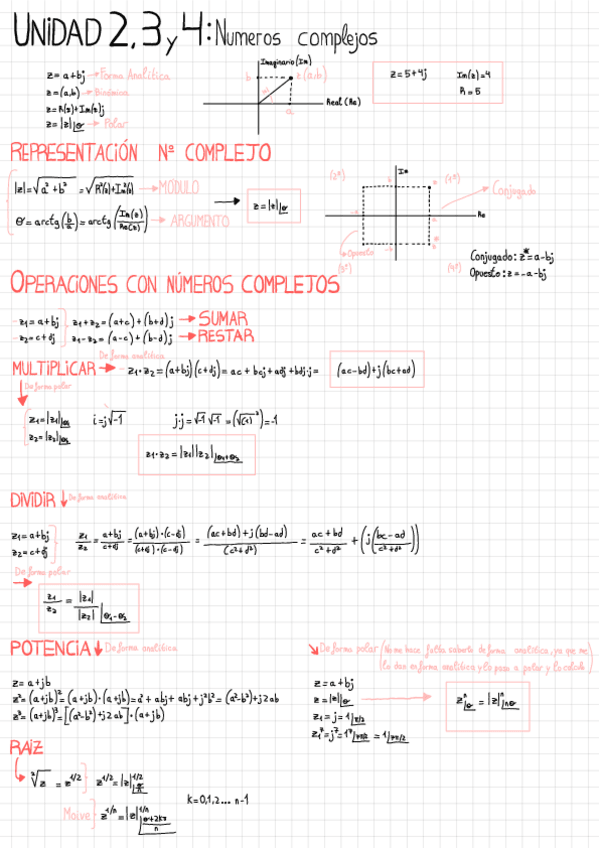 UNIDAD 2, 3 y 4: Numeros complejos
z = a+bj → Forma Analítica
z = (a,b) → Binómica
z = R(z)+Im(z)j
z = |z|θ → Polar
Imaginario (Im)
b
z (a,b)
a
Real (Re)
z = 5+4j
Im(z)=4
R = 5
REPRESENTACIÓN Nº COMPLEJO
|z| = √a²+b² = √R²(z)+Im²(z) → MÓDULO
θ = arctg(b/a) = arctg(Im(z)/Re(z)) → ARGUMENTO
z = |z|θ
Im
(2º)
(1º)
b
a
Re
Conjugado
Opuesto
(3º)
(4º)
Conjugado: z* = a-bj
Opuesto: z = -a-bj
OPERACIONES CON NÚMEROS COMPLEJOS
- z1 = a+bj
- z2 = c+dj
z1+z2 = (a+c)+(b+d)j → SUMAR
z1-z2 = (a-c)+(b-d)j → RESTAR
MULTIPLICAR
De forma analítica
z1·z2 = (a+bj)(c+dj) = ac + bcj + adj + bdj·j =
(ac-bd)+j(bc+ad)
De forma polar
z1 = |z1|θ1
z2 = |z2|θ2
i = j√-1
j·j = √-1 √-1 = (√(-1)²) = -1
z1·z2 = |z1||z2|θ1+θ2
DIVIDIR ↓ De forma analítica
z1 = a+bj
z2 = c+dj
z1/z2 = a+bj/c+dj = (a+bj)·(c-dj)/(c+dj)·(c-dj) = (ac+bd)+j(bd-ad)/(c²+d²) = ac+bd/c²+d² + (j(bc-ad/c²+d²))
De forma polar
z1/z2 = |z1|/|z2| θ1-θ2
POTENCIA ↓ De forma analítica
z = a+jb
z² = (a+jb)² = (a+jb)·(a+jb) = a²+abj+abj+j²b² = (a²-b²)+j2ab
z³ = (a+jb)³ = [(a²-b²)+j2ab]·(a+jb)
De forma polar (No me hace falta saberlo de forma analítica, ya que me
lo dan en forma analítica y lo paso a polar y lo calculo)
z = a+bj
z = |z|θ
z1 = j = 1π/2
z1⁷ = j⁷ = 1⁷7π/2 = 17π/2
zⁿθ = |z|ⁿnθ
RAIZ
²√z = z^1/2
z^1/2 = |z|^1/2
Moivre
z^1/n = |z|^1/n θ+2kπ/n
k = 0,1,2... n-1